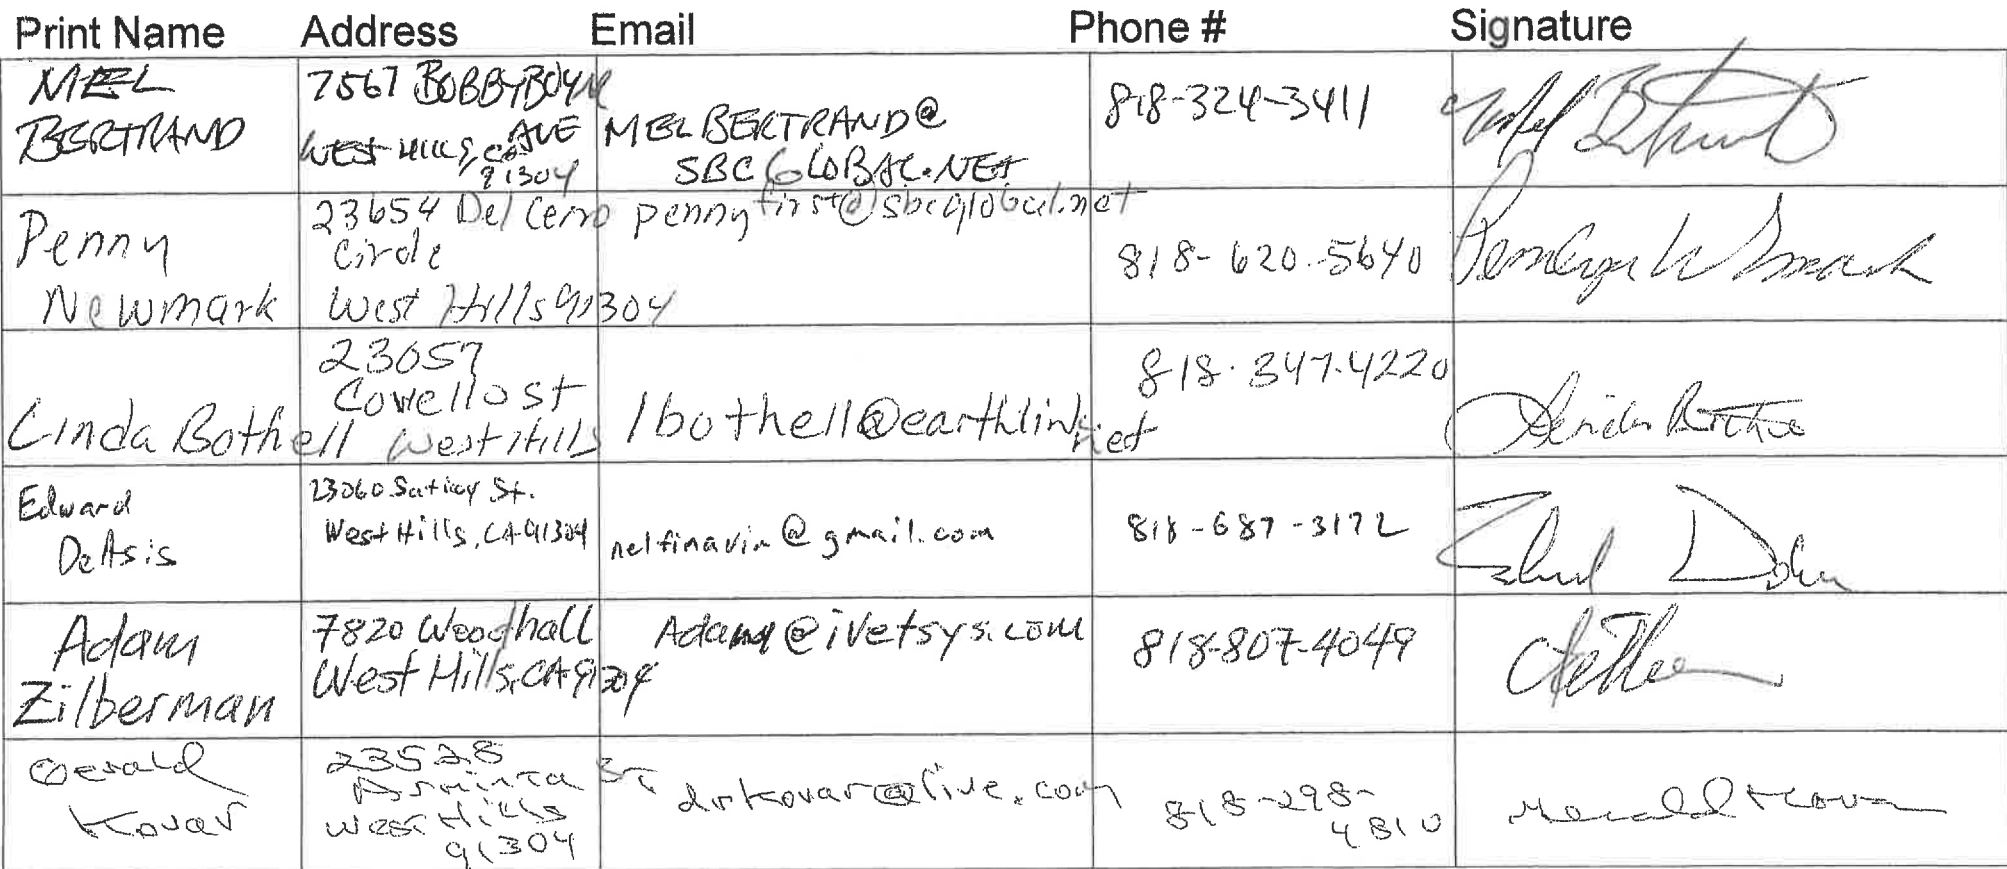 Print Name Address Email Phone # Signature
MEL
BERTRAND
7567 BOBBYBOYAR
AVE
WEST HILLS, CA
91304
MELBERTRAND@
SBCGLOBAL.NET
818-324-3411
Penny
Newmark
23654 Del Cerro
Circle
West Hills 91304
pennyfirst@sbcglobal.net
818-620-5640
Linda Bothell
23057
Covello St
West Hills
lbothell@earthlink.net
818.347.4220
Edward
DeAsis
23060 Saticoy St.
West Hills, CA 91304
nelfinavir@gmail.com
818-687-3172
Adam
Zilberman
7820 Woodhall
West Hills, CA 91304
@ivetsys.com
818-807-4049
Gerald
Kovar
23528
Arminta St
West Hills
91304
drkovar@live.com
818-298-
4810
Gerald Kovar